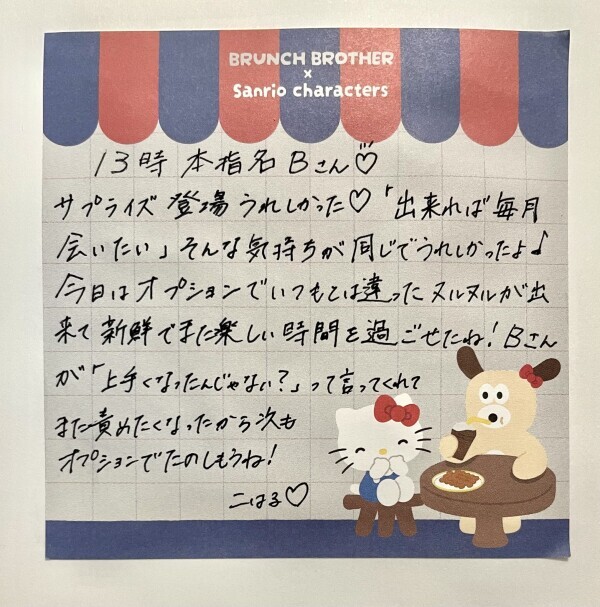 BRUNCH BROTHER
×
Sanrio characters
13時 本指名 Bさん♡
サプライズ 登場 うれしかった♡「出来れば毎月
会いたい」そんな気持ちが同じでうれしかったよ♪
今日はオプションでいつもとは違ったヌルヌルが出
来て新鮮でまた楽しい時間を過ごせたね!Bさん
が「上手くなったんじゃない?」って言ってくれて
また責めたくなったから次も
オプションでたのしもうね!
こはる♡